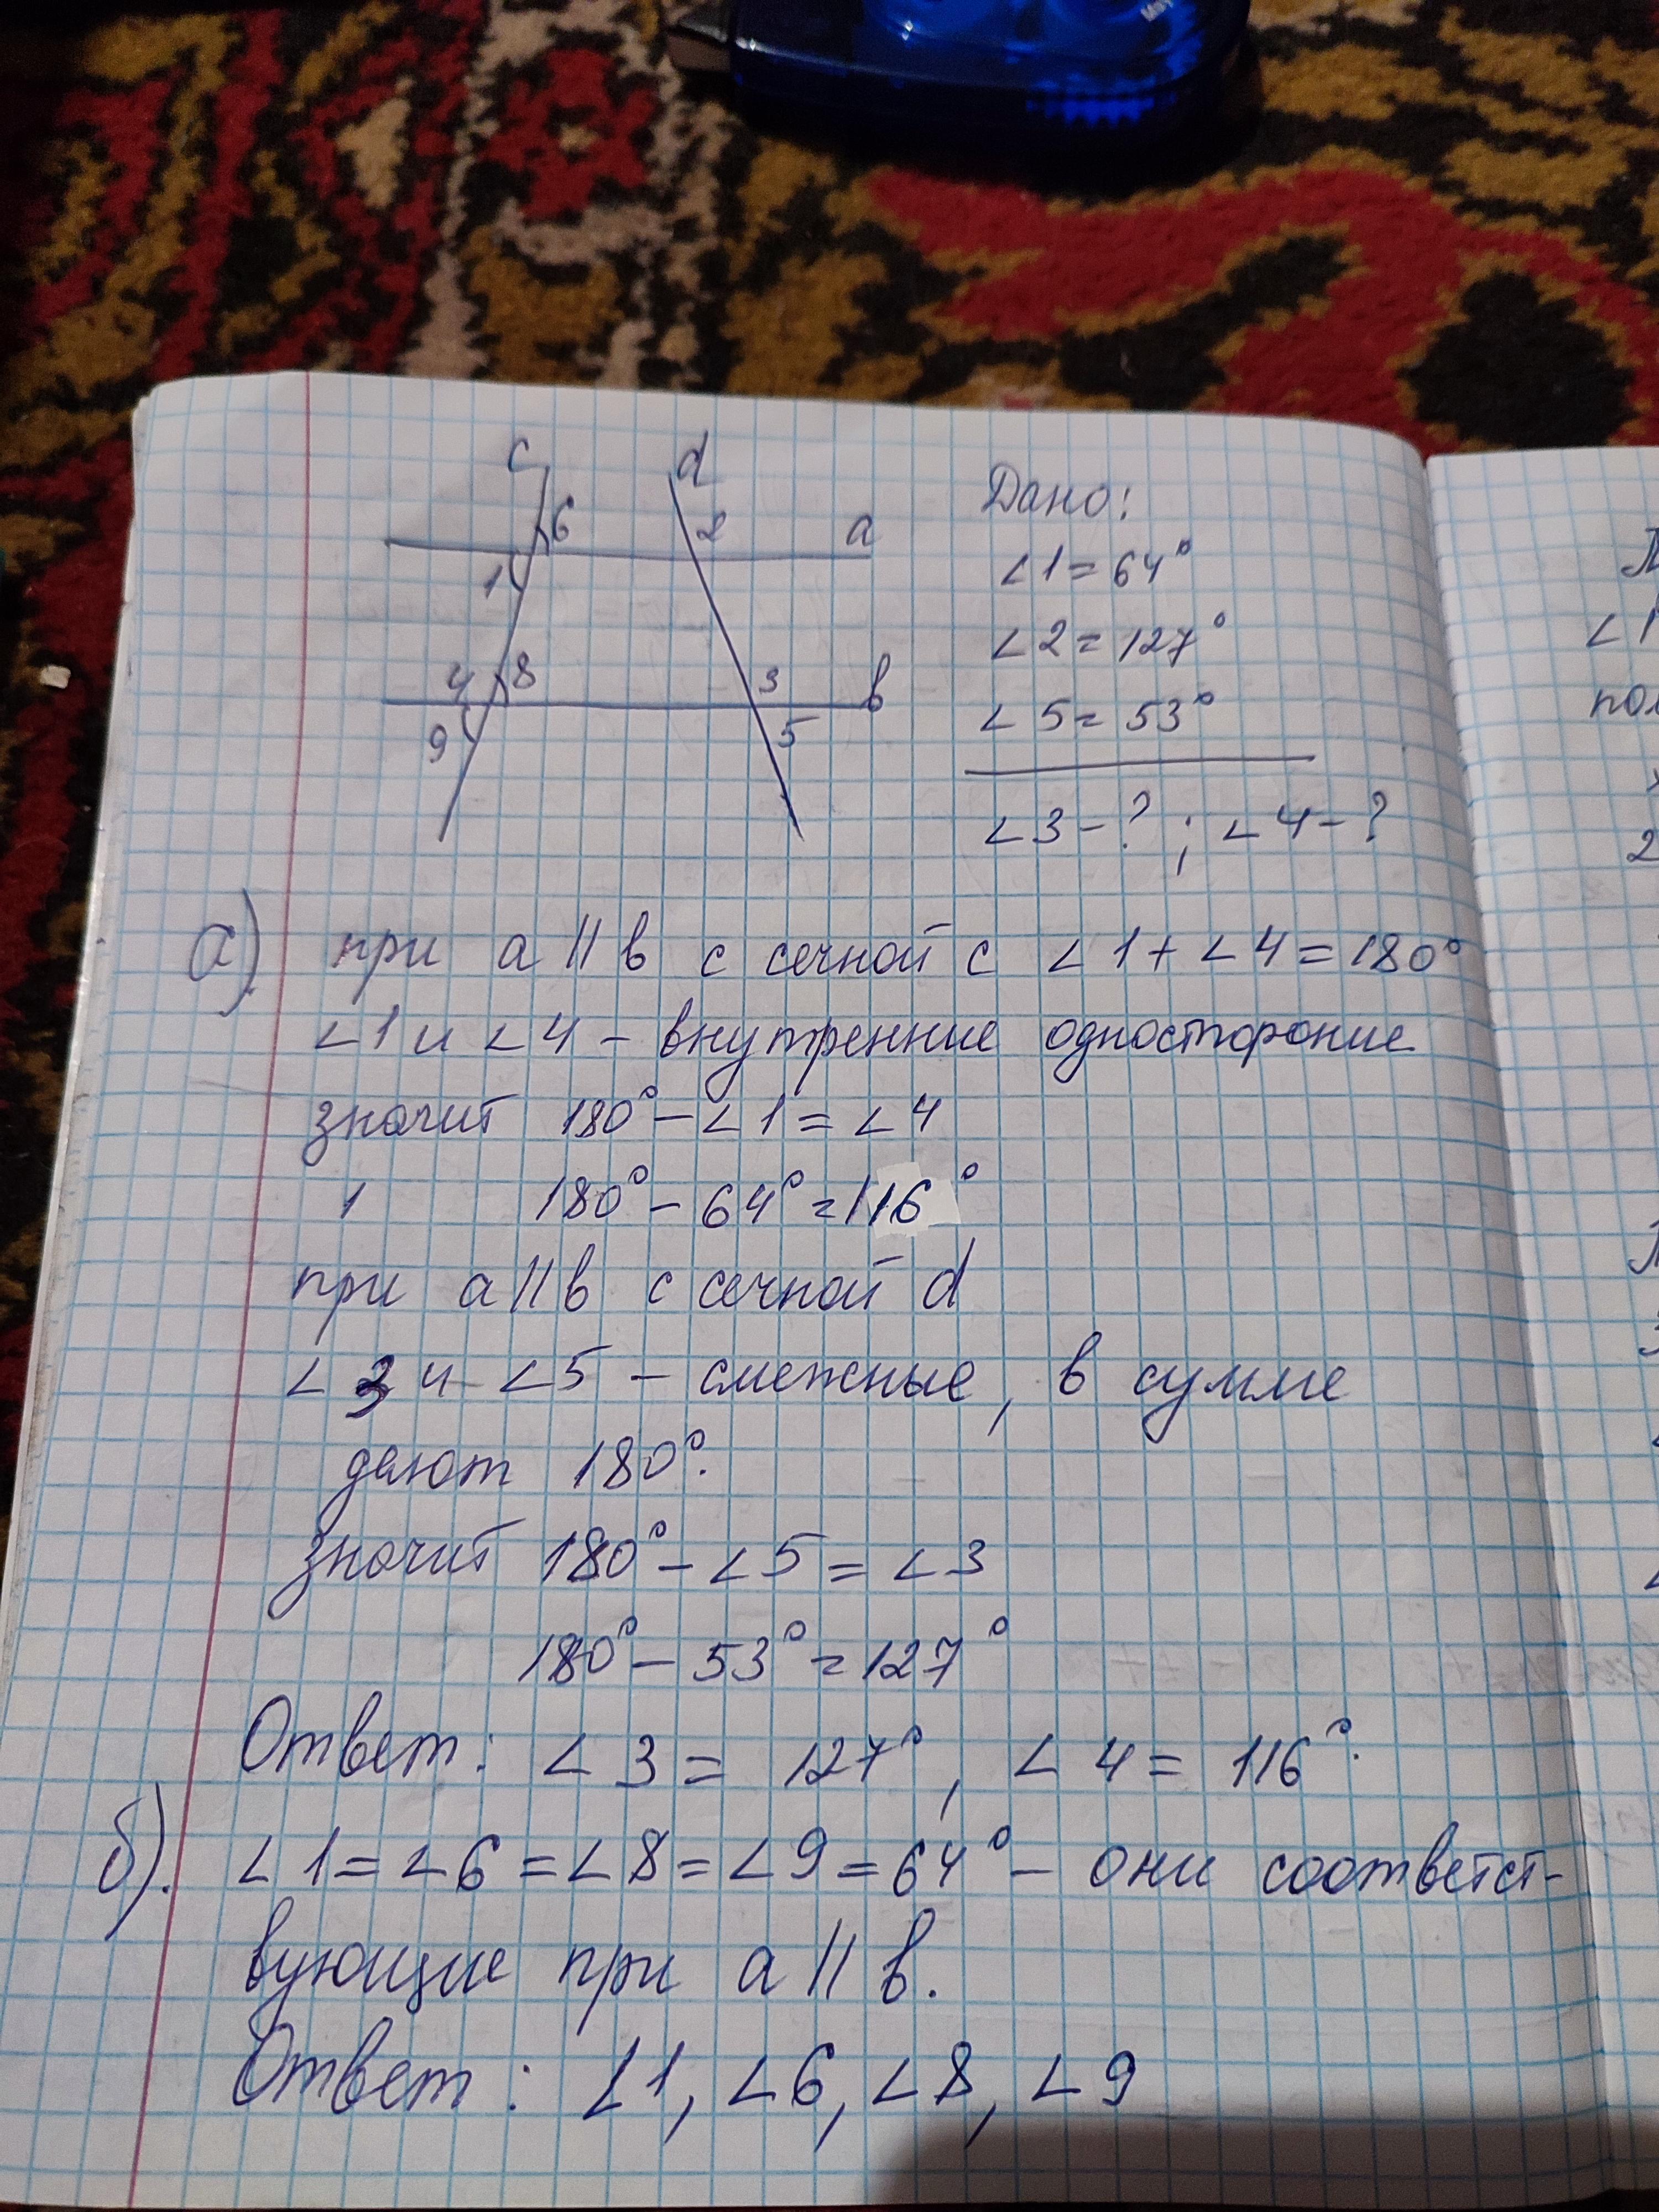 c d
6 2 a
1
4 8 3 в
9 5
Дано:
∠1=64°
∠2=127°
∠5=53°
∠3-? ; ∠4-?
а) при a || в с сечной с ∠1+∠4=180°
∠1 и ∠4 - внутренние одностороние
значит 180°-∠1=∠4
1 180°-64°=116°
при a || в с сечной d
∠3 и ∠5 - смежные, в сумме
дают 180°.
значит 180°-∠5=∠3
180°-53°=127°
Ответ: ∠3= 127°, ∠4= 116°.
б). ∠1=∠6=∠8=∠9=64° - они соответст-
вующие при a || в.
Ответ: ∠1, ∠6, ∠8, ∠9
∠1
пол
2